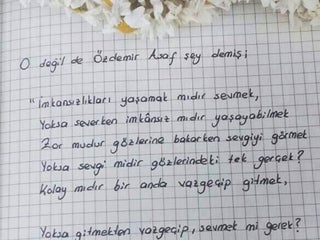 O değil de Özdemir Asaf şey demiş;
"İmkansızlıkları yaşamak mıdır sevmek,
Yoksa severken imkânsız mıdır yaşayabilmek
Zor mudur gözlerine bakarken sevgiyi görmek
Yoksa sevgi midir gözlerindeki tek gerçek?
Kolay mıdır bir anda vazgeçip gitmek,
Yoksa gitmekten vazgeçip, sevmek mi gerek?